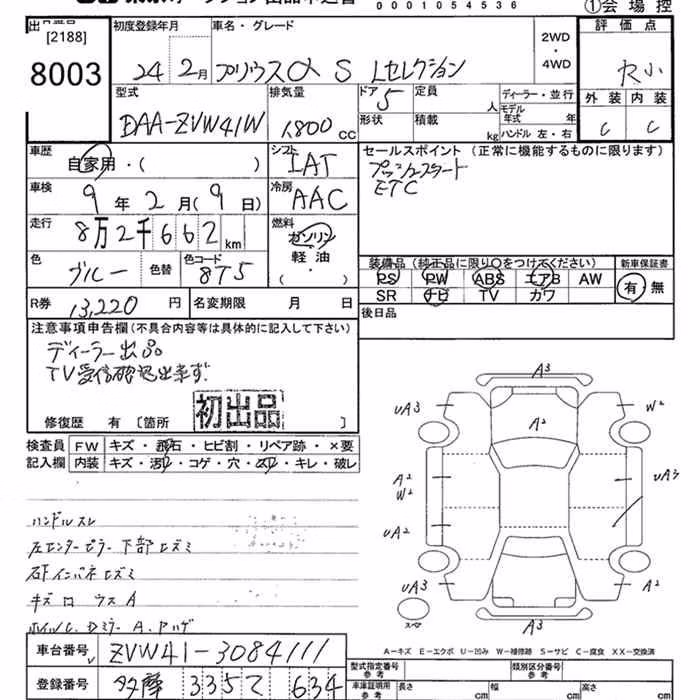 0001054536
①会場控
出品番号
[2188]
8003
初度登録年月
24年2月
車名・グレード
プリウスα S Lセレクション
2WD
・
4WD
評価点
外装 内装
C C
型式
DAA-ZVW41W
排気量
1,800 cc
ドア 5
形状
定員 人
積載 kg
ディーラー・並行
モデル年式 年
ハンドル 左・右
車歴
自家用・( )
シフト
IAT
車検
9年2月(9日)
冷房
AAC
走行
8万2千662km
燃料
ガソリン
軽油
( ・ )
色
ブルー
色替
色コード
8T5
R券
13,220円
名変期限 月 日
セールスポイント (正常に機能するものに限ります)
プッシュスタート
ETC
装備品 (純正品に限り○をつけてください)
PS PW ABS エアB AW
SR ナビ TV カワ
新車保証書
有・無
後日品
注意事項申告欄(不具合内容等は具体的に記入して下さい)
ディーラー出品
TV受信確認出来ず.
修復歴 有 〔箇所 〕
初出品
検査員 FW キズ・飛石・ヒビ割・リペア跡・×要
記入欄 内装 キズ・汚レ・コゲ・穴・スレ・キレ・破レ
ハンドルスレ
左センターピラー下部ヒズミ
キズ ロ ウス A
A3
UA3 W2
A2
A2
W2
UA3
UA2
UA3 A2
スペア
A3
A-キズ E-エクボ U-凹み W-補修跡 S-サビ C-腐食 XX-交換済
車台番号 ZVW41-3084111
登録番号 多摩 335 て 634
型式指定番号 参考
類別区分番号 参考
車庫証明用 参考 長さ cm 幅 cm 高さ cm